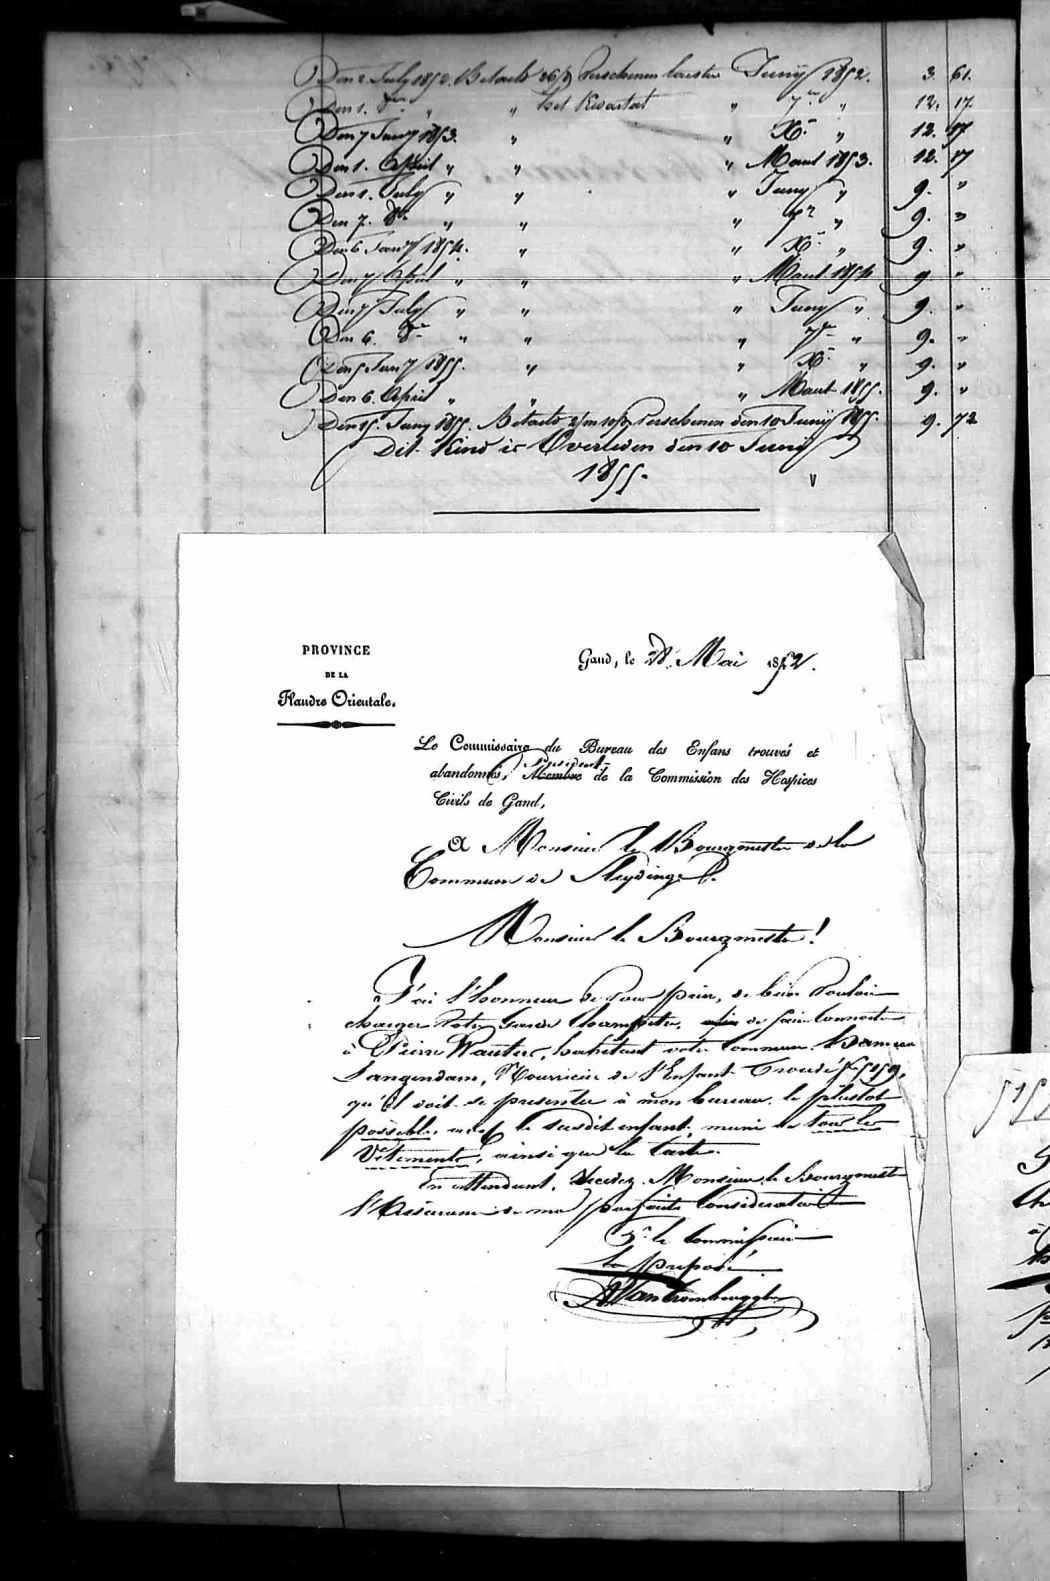 Den 2 July 1852. Betaelt 26/d Verschenen laesten Juny 1852. 3. 61.
Den 1. 8re " " het Kwartael " 7re " 12. 17.
Den 7 Jany 1853. " " Xre " 12. 17
Den 1. April " " " Maert 1853. 12. 17
Den 1. July " " " Juny " 9. "
Den 7. 8re " " " 7re " 9. "
Den 6 Jany 1854. " " Xre " 9. "
Den 7 April " " " Maert 1854 9. "
Den 7 July " " " Juny " 9. "
Den 6. 8re " " " 7re " 9. "
Den 5 Jany 1855. " " Xre " 9. "
Den 6. April " " " Maert 1855. 9. "
Den 15. Juny 1855. Betaelt 2/m 10/d Verschenen den 10 Juny 1855. 9. 72
Dit Kind is Overleden den 10 Juny
1855.
PROVINCE
DE LA
Flandre Orientale.
Gand, le 28 Mai 1852.
Le Commissaire du Bureau des Enfans trouvés et
abandonnés, Membre de la Commission des Hospices
Civils de Gand,
A Monsieur le Bourgmestre de la
Commune de Sleydinge.
Monsieur le Bourgmestre!
J'ai l'honneur de vous prier, de bien vouloir
charger votre Garde Champêtre, afin de faire connaitre
à Pierre Wauters, habitant votre commune. hameau
Langendam, Nourricier de l'Enfant Trouvé No 5159,
qu'il doit se presenter à mon bureau le plustot
possible, avec le susdit enfant, muni de tous les
Vêtements, ainsi que la Carte.
En attendant, Recevez Monsieur le Bourgmestre
l'Assurance de ma parfaite Considération
Pr le Commissaire
le préposé